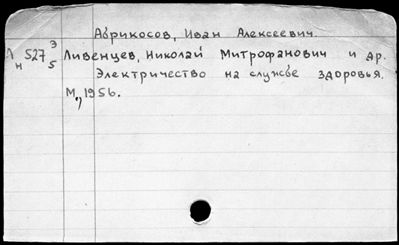 Абрикосов, Иван Алексеевич.
Л н 527 э 5
Ливенцев, Николай Митрофанович и др.
Электричество на службе здоровья.
М., 1956.